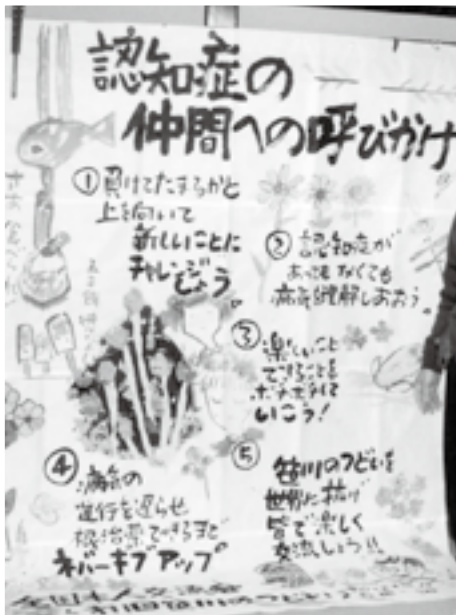 認知症の
仲間への呼びかけ
① 負けてたまるかと
上を向いて
新しいことに
チャレンジ
しよう。
② 認知症が
あってもなくても
病気を理解しあおう。
③ 楽しいこと
できることを
ボチボチして
いこう！
④ 病気の
進行を遅らせ
根治薬できるまで
ネバーギブアップ
⑤ 笹川のつどいを
世界に拡げ
皆で楽しく
交流しよう!!